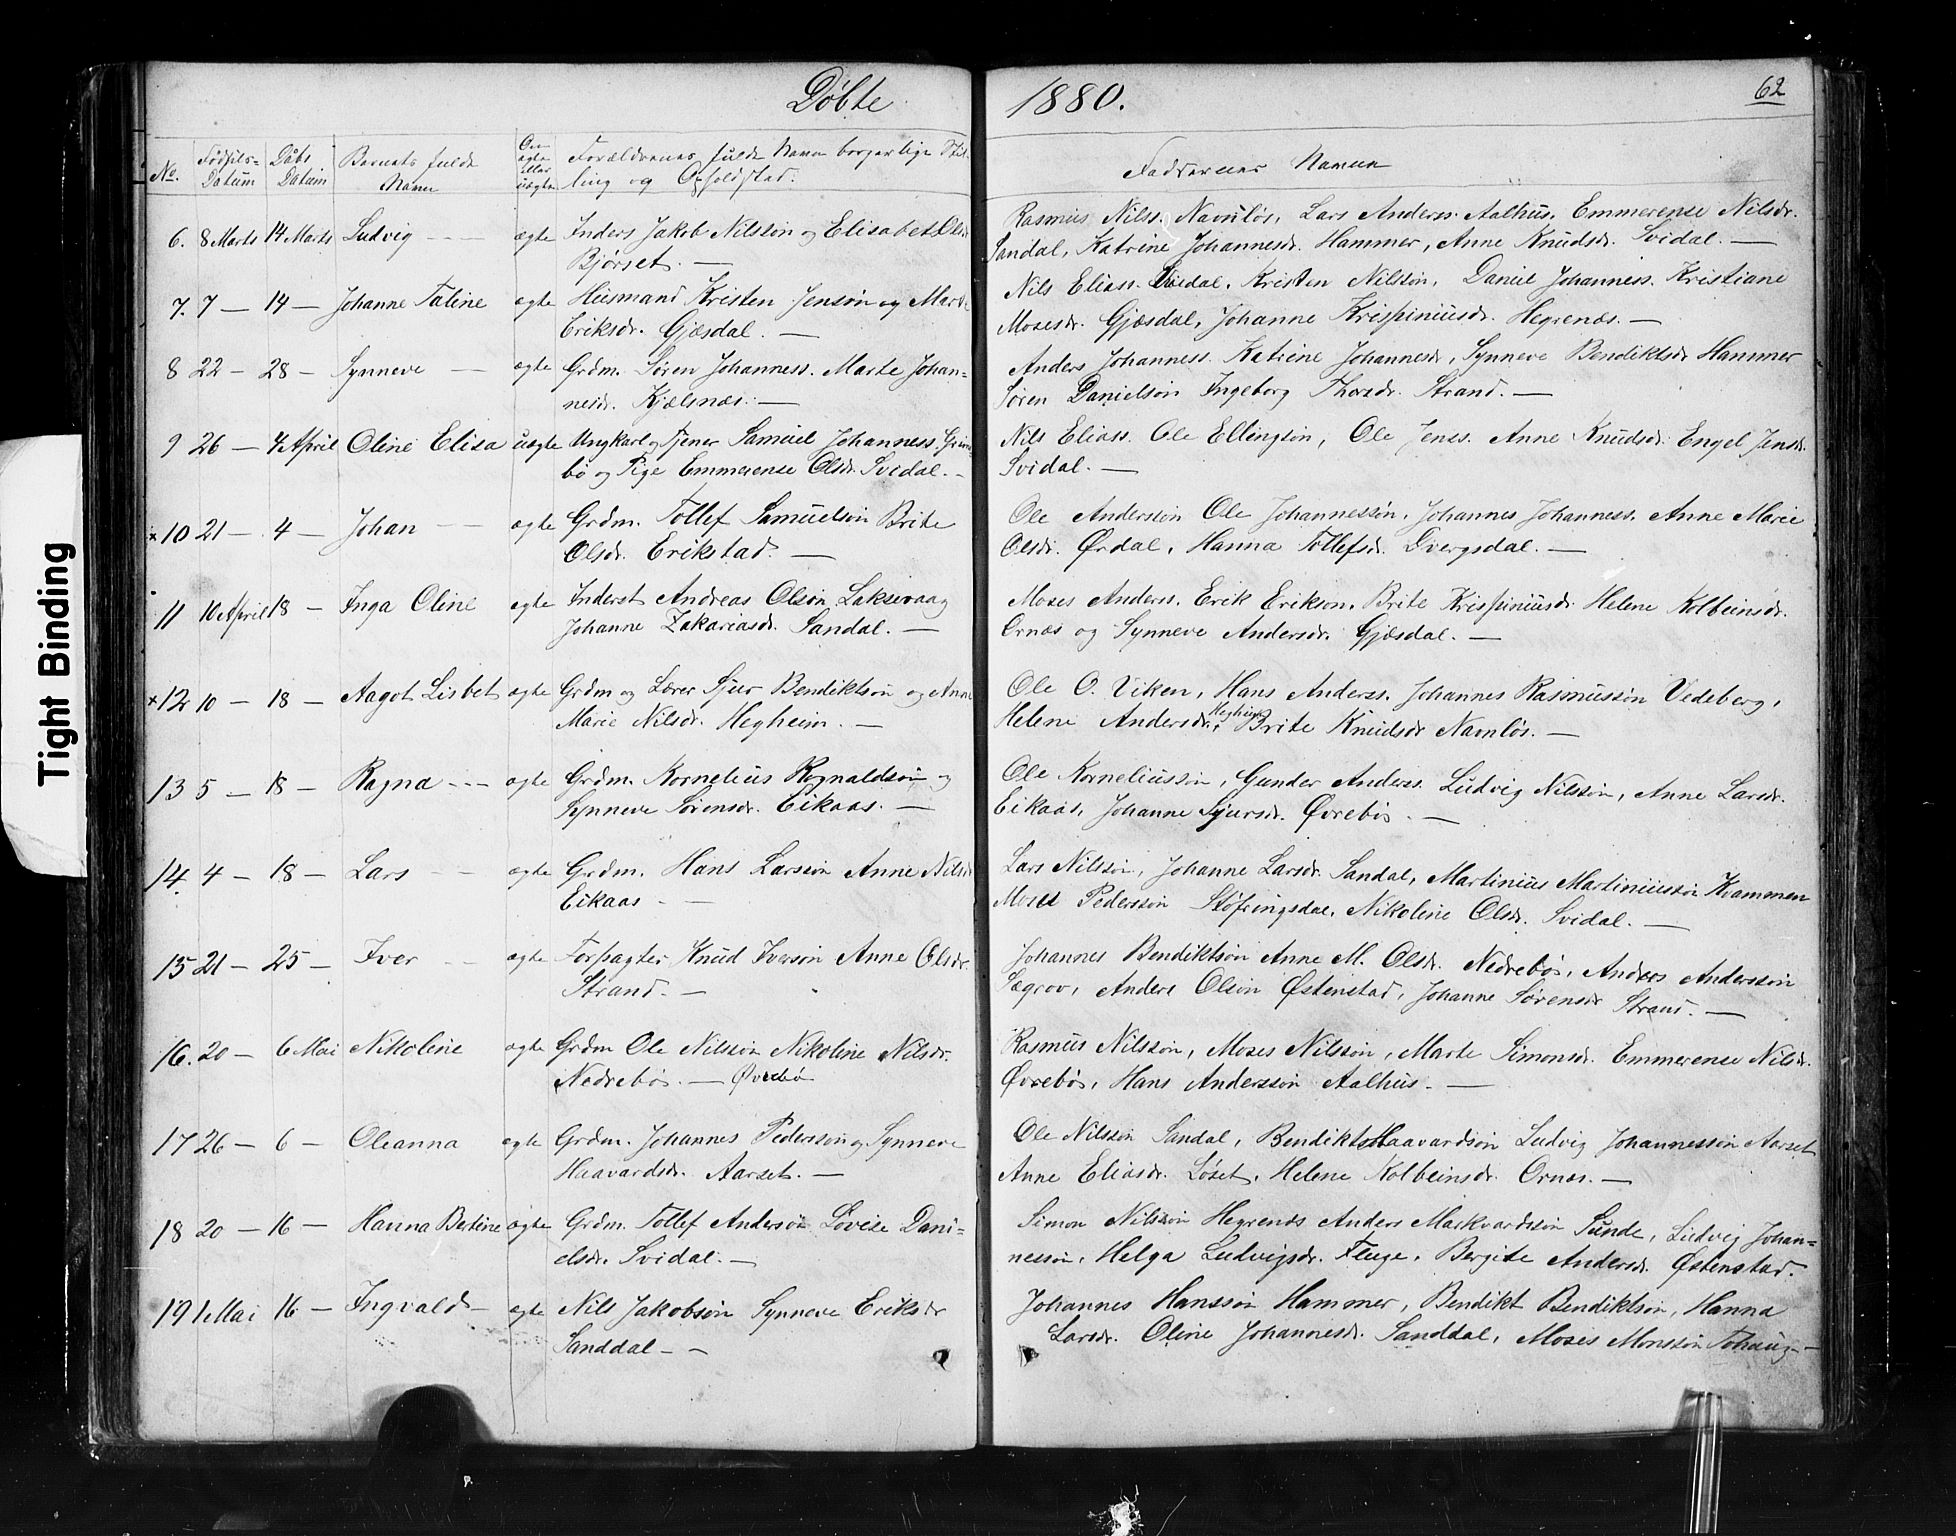 Døbte 1880. 62
No. Fødsels-Datum Daabs Datum Barnets fulde Navn Om ægte eller uægte Forældrenes fulde Navn borgerlige Stilling og Opholdsted. Faddernes Navne
6. 8 Marts 14 Marts Ludvig ægte Inders Jakob Nilsson og Elisabet Olsdr
Bjørset. —
Rasmus Nilss. Navnløs, Lars Anderss. Aalhus, Emmerense Nilsdr.
Sandal, Katrine Johannesdr. Hammer, Anne Knudsdr. Svidal. —
7. 7 — 14 — Johanne Taline ægte Husmand Kristen Jensøn og Marte
Eriksdr. Gjæsdal. —
Nils Eliass. Svidal, Kristen Nilsøn, Daniel Johanness. Kristiane
Mosesdr. Gjæsdal, Johanne Krispiniusdr. Hegrenæs. —
8 22 — 28 — Synneve — ægte Grdm. Søren Johanness. Marte Johan=
nesdr. Kjælsnæs. —
Anders Johanness. Katrine Johannesdr, Synneve Bendiktsdr Hammer
Søren Danielsøn Ingeborg Thorsdr. Strand. —
9 26 — 4 April Oline Elisa uægte Ungkarl og Tjener Samuel Johanness. Grim
bø og Pige Emmerense Olsdr. Svidal. —
Nils Eliass. Ole Ellingsøn, Ole Jenss. Anne Knudsdr. Engel Jensdr.
Svidal. —
x 10 21 — 4 — Johan — ægte Grdm. Tollef Samuelsøn Brite
Olsdr. Erikstad. —
Ole Andersøn Ole Johannessøn, Johannes Johanness. Anne Marie
Olsdr. Ørdal, Hanna Tollefsdr. Dvergsdal. —
11 10 April 18 — Inga Oline ægte Inderst Andreas Olsøn Laksevaag
Johanne Zakariasdr. Sandal. —
Moses Anderss. Erik Eriksøn, Brite Krispiniusdr Helene Kolbeinsdr.
Ornæs og Synneve Andersdr. Gjæsdal. —
x 12 10 — 18 — Aagot Lisbet ægte Grdm og Lærer Sjur Bendiktsøn og Anne
Marie Nilsdr. Hegheim. —
Ole O. Viken, Hans Anderss. Johannes Rasmussøn Vedeberg,
Helene Andersdr. Hegheim, Brite Knudsdr Navnløs. —
13 5 — 18 — Ragna — ægte Grdm. Kornelius Rognaldsøn og
Synneve Sørensdr. Eikaas. —
Ole Korneliussøn, Gunder Anderss. Ludvig Nilssøn, Anne Larsdr.
Eikaas, Johanne Sjursdr. Øvrebøs. —
14. 4 — 18 — Lars — ægte Grdm. Hans Larssøn Anne Nilsdr
Eikaas — —
Lars Nilssøn, Johanne Larsdr. Sandal, Martinius Martiniussøn Kvammen
Moses Pederssøn Støfringsdal, Nikoline Olsdr. Svidal. —
15 21 — 25 — Iver — ægte Forpagter Knud Iversøn Anne Olsdr.
Strand. —
Johannes Bendiktsøn Anne M. Olsdr. Nedrebøs, Anders Anderssøn
Sægrov, Anders Olsøn Østenstad, Johanne Sørensdr Strand. —
16. 20 — 6 Mai Nikoline ægte Grdm Ole Nilssøn Nikoline Nilsdr.
Nedrebøs. — Øvrebø
Rasmus Nilssøn, Moses Nilssøn, Marte Simonsdr. Emmerense Nilsdr.
Øvrebøs, Hans Anderssøn Aalhus. —
17 26 — 6 — Oleanna ægte Grdm. Johannes Pederssøn og Synneve
Haavardsdr. Aarset. —
Ole Nilssøn Sandal, Bendikt Haavardsøn Ludvig Johannessøn Aarset
Anne Eliasdr. Løset, Helene Kolbeinsdr. Ornæs. —
18 20 — 16 — Hanna Bertine ægte Grdm. Tollef Andersøn Lovise Dani=
elsdr. Svidal. —
Simon Nilssøn Hegrenæs Anders Markvardssøn Sunde, Ludvig Johan=
nessøn, Helga Ludvigsdr. Fluge, Bergite Andersdr. Østenstad.
19 1 Mai 16 — Ingvald — ægte Nils Jakobsøn Synneve Eriksdr
Sanddal — —
Johannes Hanssøn Hammer, Bendikt Bendiktsøn, Hanna
Larsdr. Oline Johannesdr. Sanddal, Moses Monssøn —
Tight Binding